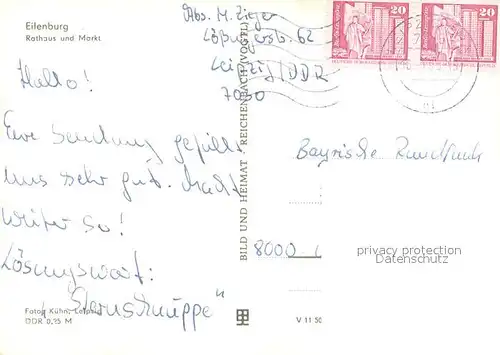 Eilenburg
Rathaus und Markt
Abs. M. Zieger
Leipzig/DDR
7050
Hallo!
Eure Sendung gefällt
uns sehr gut. Macht
weiter so!
Lösungswort:
"Sternschnuppe"
Fotog Kühn, Leipzig
DDR 0,25 M
BILD UND HEIMAT REICHENBACH (VOGTL)
V 11 50
20
20
Bayrische Rundfunk
8000
privacy protection
Datenschutz